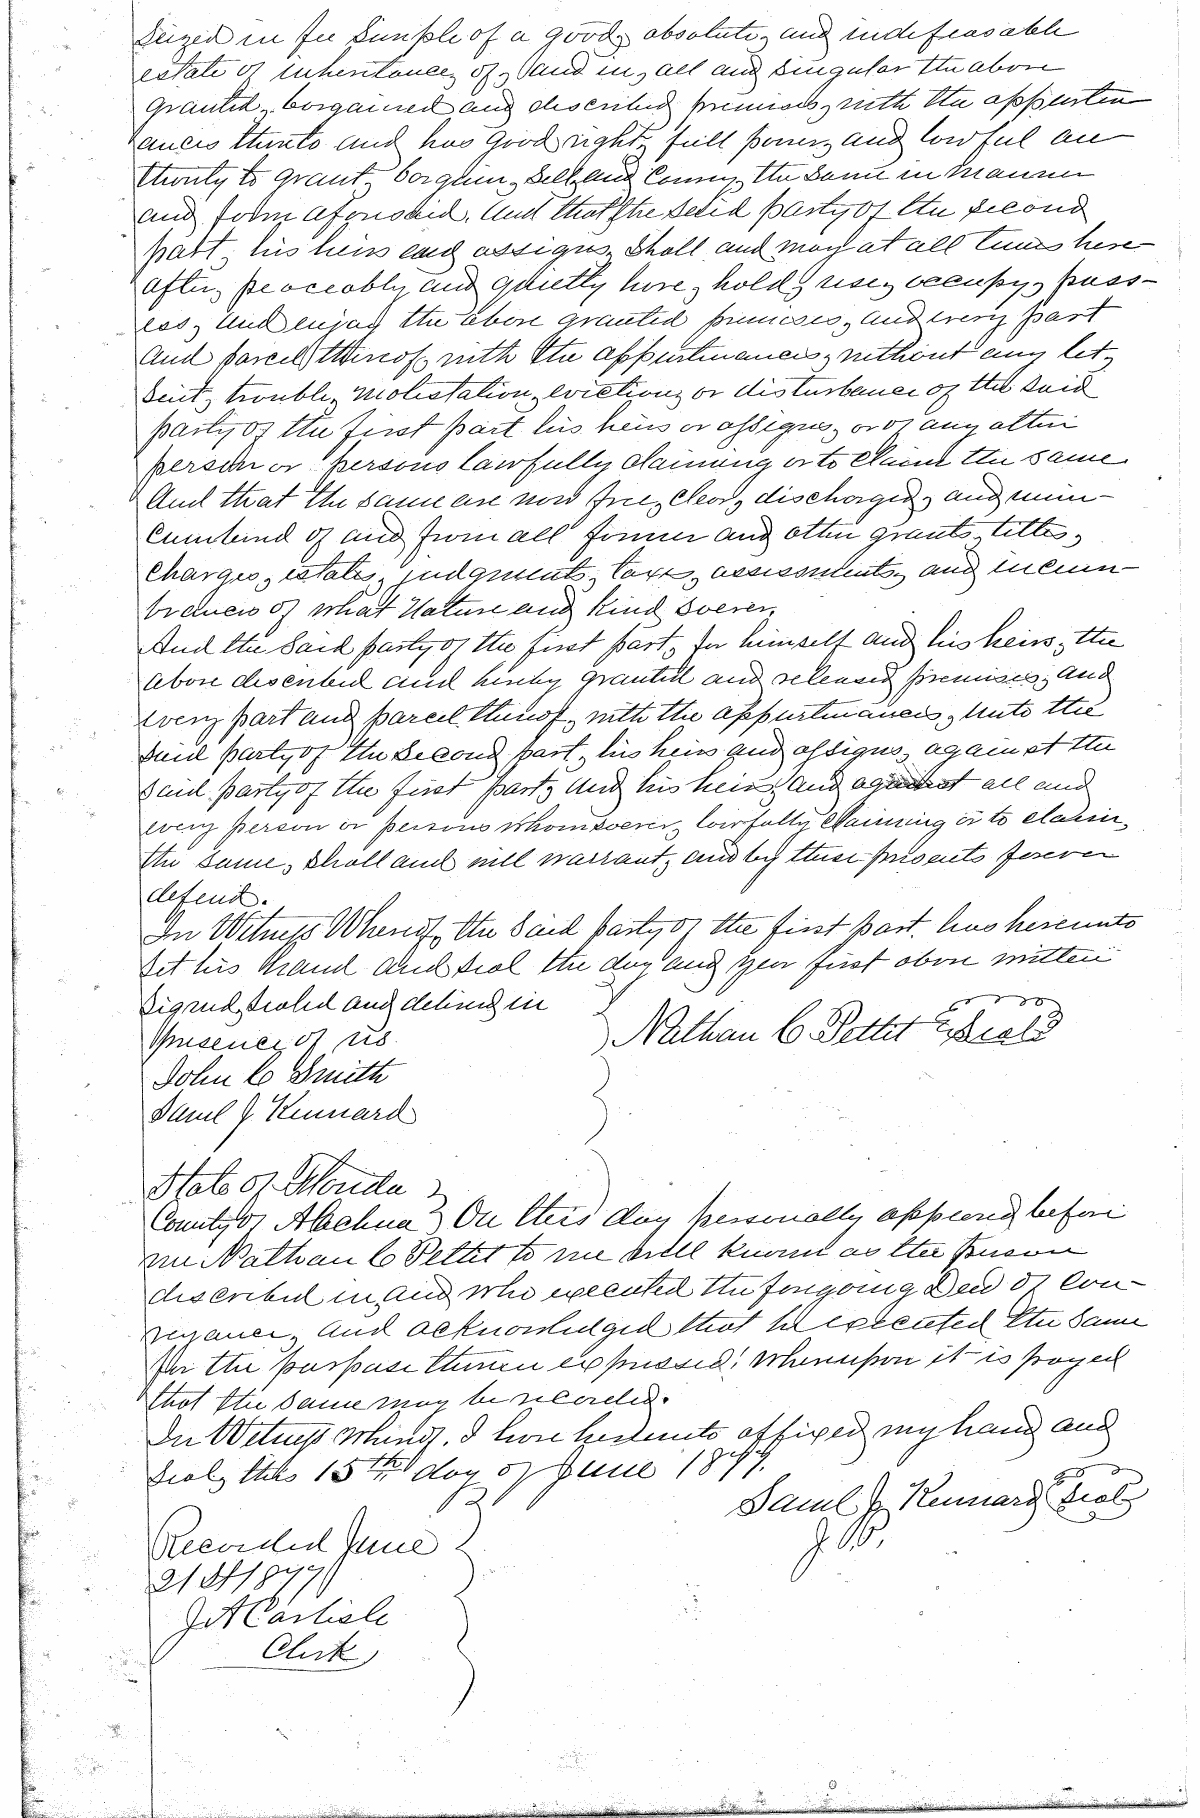 Seized in fee simple of a good, absolute, and indefeasable
estate of inheritance, of, and in, all and singular the above
granted, bargained and described premises, with the appurten
ances thereto and has good right, full power, and lawful au
thority to grant, bargain, sell, and convey the same in manner
and form aforesaid. And that the said party of the second
part, his heirs and assigns, shall and may at all times here-
after, peaceably and quietly have, hold, use, occupy, poss-
ess, and enjoy the above granted premises, and every part
and parcel thereof, with the appurtenances, without any let,
suit, trouble, molestation, eviction, or disturbance of the said
party of the first part his heirs or assigns, or of any other
person or persons lawfully claiming or to claim the same
And that the same are now free, clear, discharged, and unin-
cumbered of and from all former and other grants, titles,
charges, estates, judgments, taxes, assessments, and incum-
brances of what Nature and Kind soever,
And the Said party of the first part, for himself and his heirs, the
above described and hereby granted and released premises, and
every part and parcel thereof, with the appurtenances, unto the
said party of the Second part, his heirs and assigns, against the
said party of the first part, and his heirs, and against all and
every person or persons whomsoever, lawfully claiming or to claim
the same, shall and will warrant, and by these presents forever
defend.
In Witness Whereof, the Said party of the first part, has hereunto
set his hand and seal the day and year first above written
Signed, Sealed and delived in
Presence of us
Nathan C Pettit Seal
John C Smith
Saml J. Kennard
State of Florida
County of Alachua } On this day personally appeared before
me Nathan C Pettit to me well known as the person
described in, and who executed the foregoing Deed of Con-
veyance, and acknowledged that he executed the Same
for the purpose therein expressed: Whereupon it is prayed
that the same may be recorded.
In Witness Whereof, I have hereunto affixed my hand and
Seal, this 15th day of June 1877.
Saml J. Kennard Seal
J. P.
Recorded June
21st 1877
J A Carlisle
Clerk